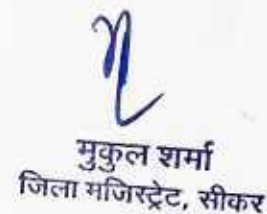 मुकुल शर्मा
जिला मजिस्ट्रेट, सीकर